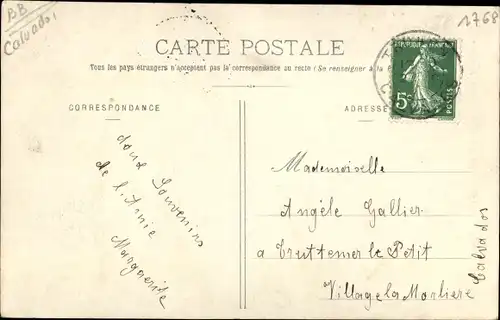 BB
Calvados
2768
CARTE POSTALE
Tous les pays étrangers n'acceptent pas la correspondance au recto (Se renseigner à la
CORRESPONDANCE
ADRESSE
REPUBLIQUE FRANÇAISE
5c
POSTES
doux Souvenirs
de l'Amie
Marguerite
Mademoiselle
Angèle Gallier
a Truttemer le Petit
Village la Morliere
Calvados